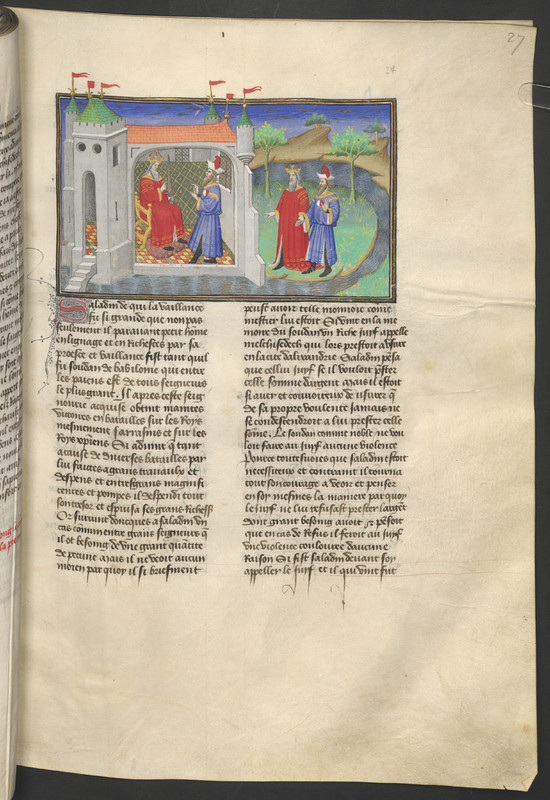 27
Saladin de qui la vaillance
fu si grande que non pas
seulement il paravant petit hōme
en lignage et en richesses par sa
proesce et vaillance fist tant quil
fu soudan de babilone qui entre
les paiens est de tous seigneurs
le plus grant. Il apres ceste seig
nourie acquise obtint maintes
victoires en batailles sur les Roys
mesmement sarrasins et sur les
Roys xpiens Si advint q̄ tant
a cause de diverses batailles par
lui faictes a grans travaulx et
despens et entresgrans magnifi
cences et pompes il despendi tout
son tresor et espuisa ses grans richess
Or survint doncques a saladin un
cas comment es grans seigneurs q̄
il ot besoing de une grant quātite
de pecune Mais il ne veoit aucun
moien par quoy il si briefment
peust avoir telle monnoie come
mestier lui estoit Si vint en la me
moire du soudan un riche juif appelle
melchisedech qui lors prestoit a usure
en la cite dalixandrie Saladin pēsa
que cellui juif se il vouloit p̄ster
celle somme dargent Mais il estoit
si aver et convoiteux de usurer q̄
de sa propre voulente jamais ne
se condescendroit a lui prester celle
some. Le soudan comme noble ne vou
loit faire au juif aucune violence
Pource toutesvoies que saladin estoit
necessiteux et contraint il tourna
tout son courage a veoir et penser
en soy mesmes la maniere par quoy
le juif ne lui refusast prester largēt
dont grant besoing avoit Et pēsoit
que en cas de Refus il feroit au juif
une violence coulouree daucune
Raison Si fist saladin devant soy
appeller le juif et il qui vint fut